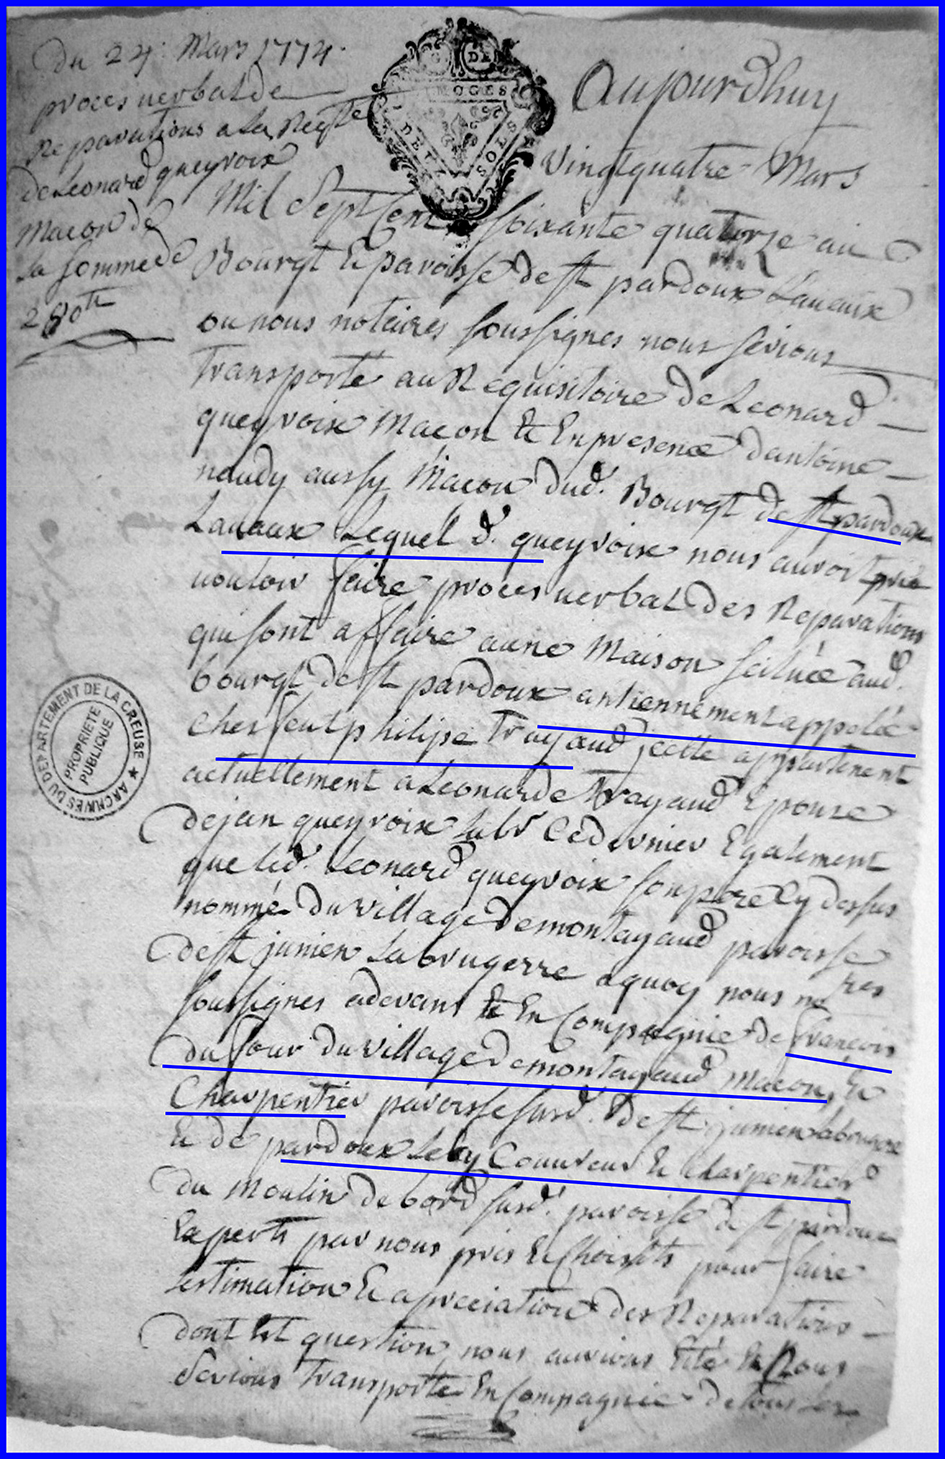 Du 24: Mars 1774.
proces verbal de
Reparations a la Reqte
de Leonard queyroix
Macon de
la somme de
280tt
G. DE
LIMOGES
DEUX SOLS
Aujourdhuy
vingtquatre Mars
Mil Sept Cent soixante quatorze au
Bourgt Et paroisse de st pardoux Lavaux
ou nous notaires soussignes nous serions
Transporte au Requisitoire de Leonard
queyroix Macon Et En presence dantoine
naudy aussy Macon dud. Bourgt de st pardoux
Lavaux Lequel d. queyroix nous auroit prié
vouloir faire proces verbal des Reparations
qui sont a ffaire a une Maison scituée aud.
bourgt de st pardoux antiennement appelée
Cher philipe Trayaud icelle appartenent
actuellement a Leonarde Trayaud Epouze
de jean queyroix labr Cedernier Egalement
que led. Leonard queyroix son pere Cy dessus
nommé du village de montayaud paroisse
de st junien la brugerre a quoy nous nores
soussignes adevant Et En Compagnie de francois
du four du village de montayaud macon, Et
Charpentier paroisse susd. de st junien labrugere
Et de pardoux Couvreur Et Charpentier
du Moulin de bord susd. paroisse de st pardoux
Experts par nous pris Et Choisits pour faire
lestimation Et apreciation des Reparations
dont Est question nous aurions Eté Et Nous
Serions transporte En Compagnie de tous les
ARCHIVES DU DEPARTEMENT DE LA CREUSE ★
PROPRIETE
PUBLIQUE